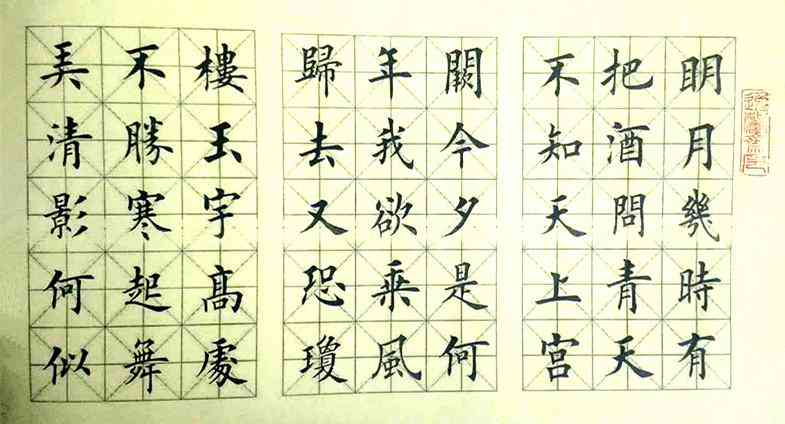 明月幾時有
把酒問青天
不知天上宮
闕今夕是何
年我欲乘風
歸去又恐瓊
樓玉宇高處
不勝寒起舞
弄清影何似